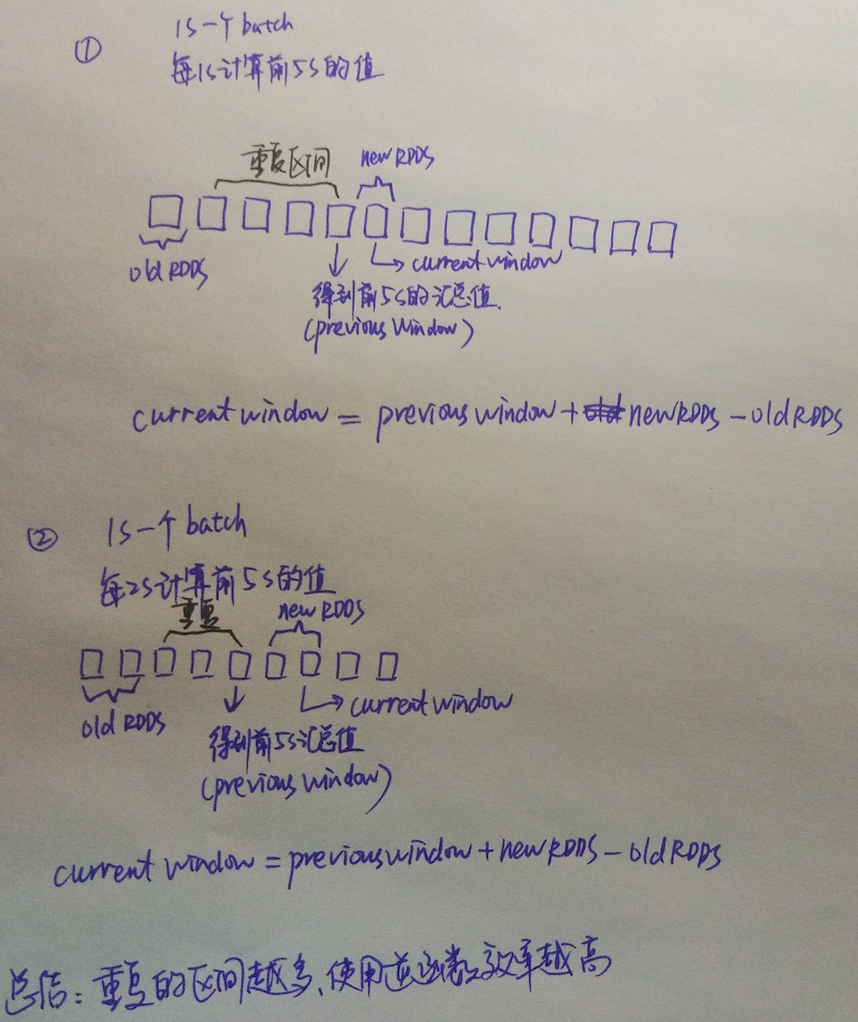 ① 1S一个batch
每1S计算前5S的值
重复区间 new RDDS
old RDDS
current window
得到前5S的汇总值.
(previous window)
current window = previous window + new RDDS - old RDDS
② 1S一个batch
每2S计算前5S的值
重复 new RDDS
old RDDS
current window
得到前5S汇总值
(previous window)
current window = previous window + new RDDS - old RDDS
总结: 重复的区间越多、使用逆函数效率越高